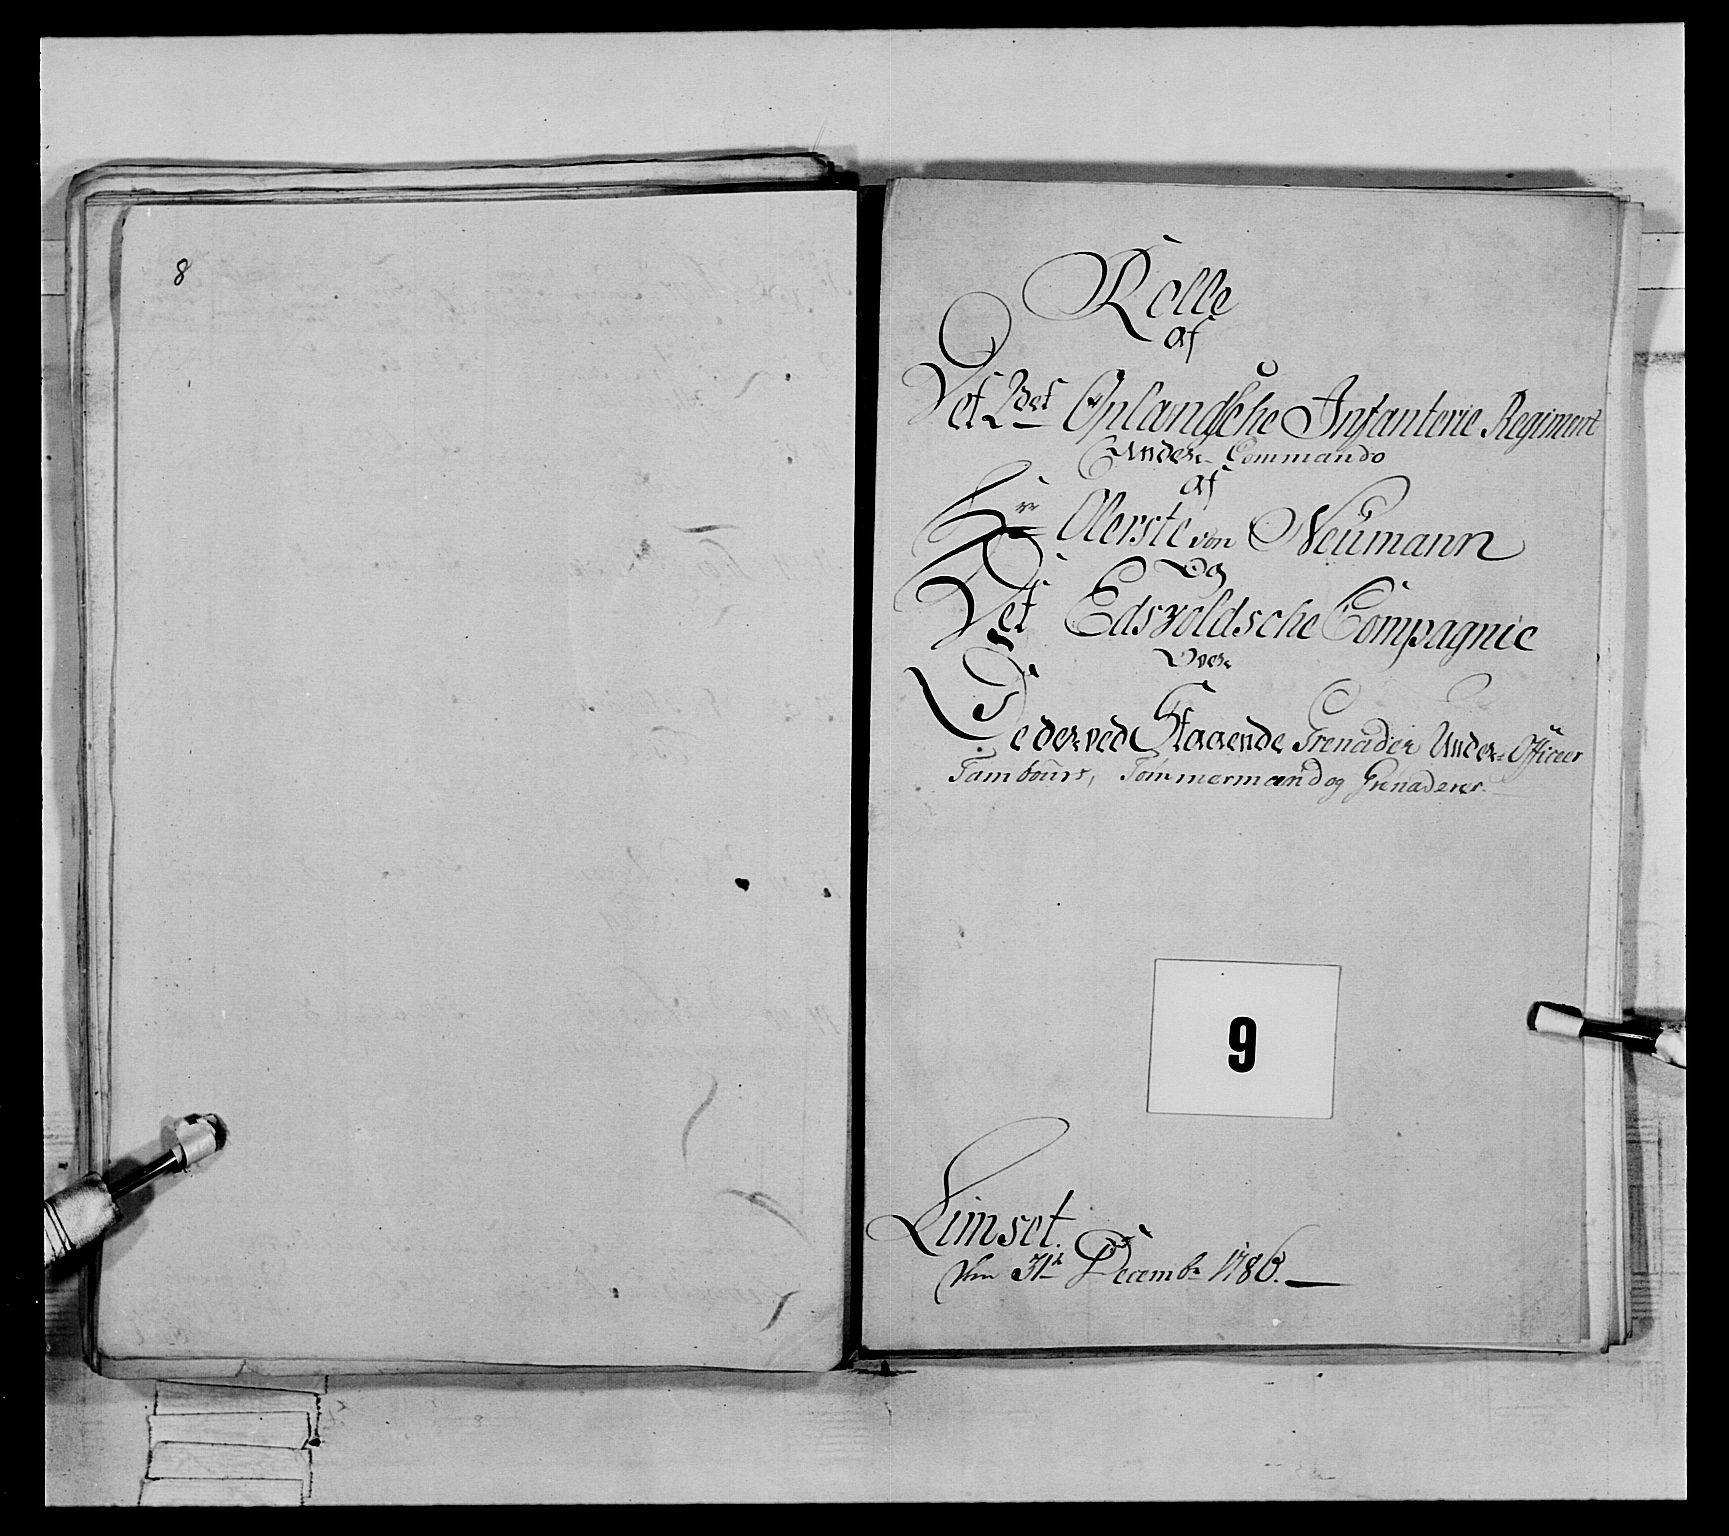 8
Rolle
af
Det 2det Oplandsche Infanterie Regiment
Under Commando
af
Hrr Oberste von Neumann
Og
Det Edsvoldsche Compagnie
Over
De derved Staaende Grenadier Under-Officeer
Tambours, Tömmermænd og Grenaderer.
9
Limset.
den 31te Decembr 1786.